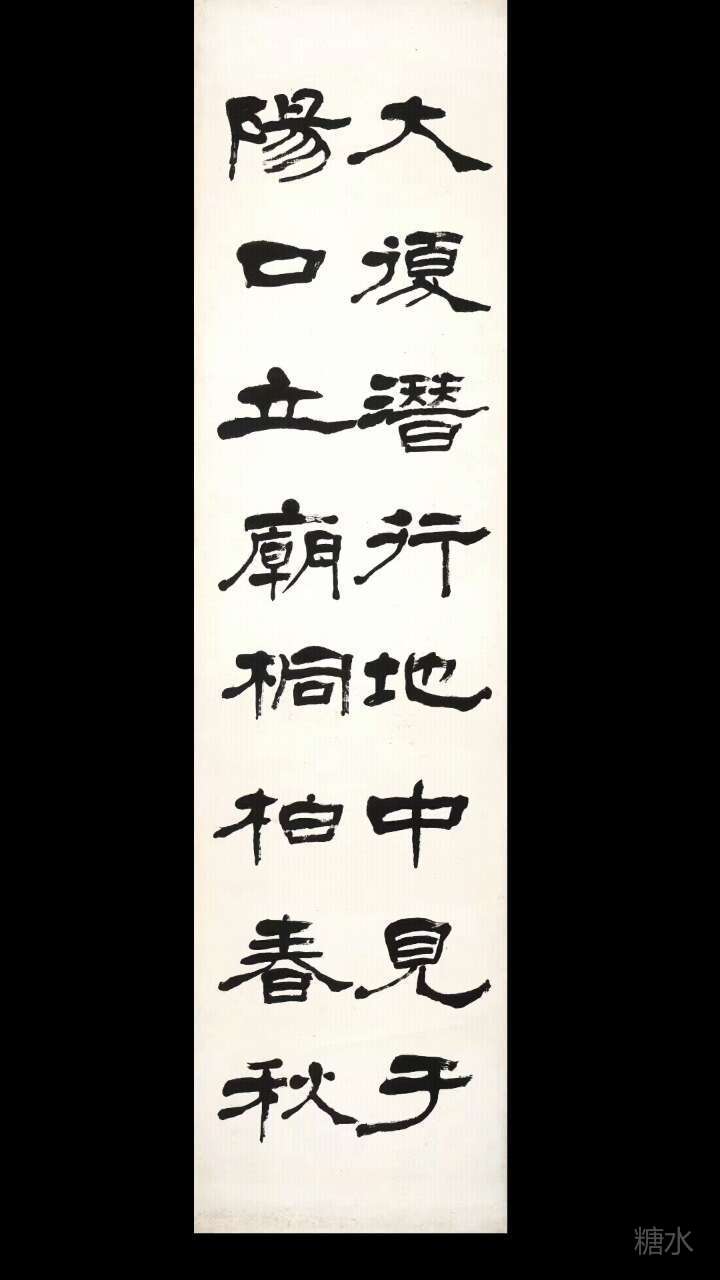 大復潛行地中見于
陽口立廟桐柏春秋
糖水